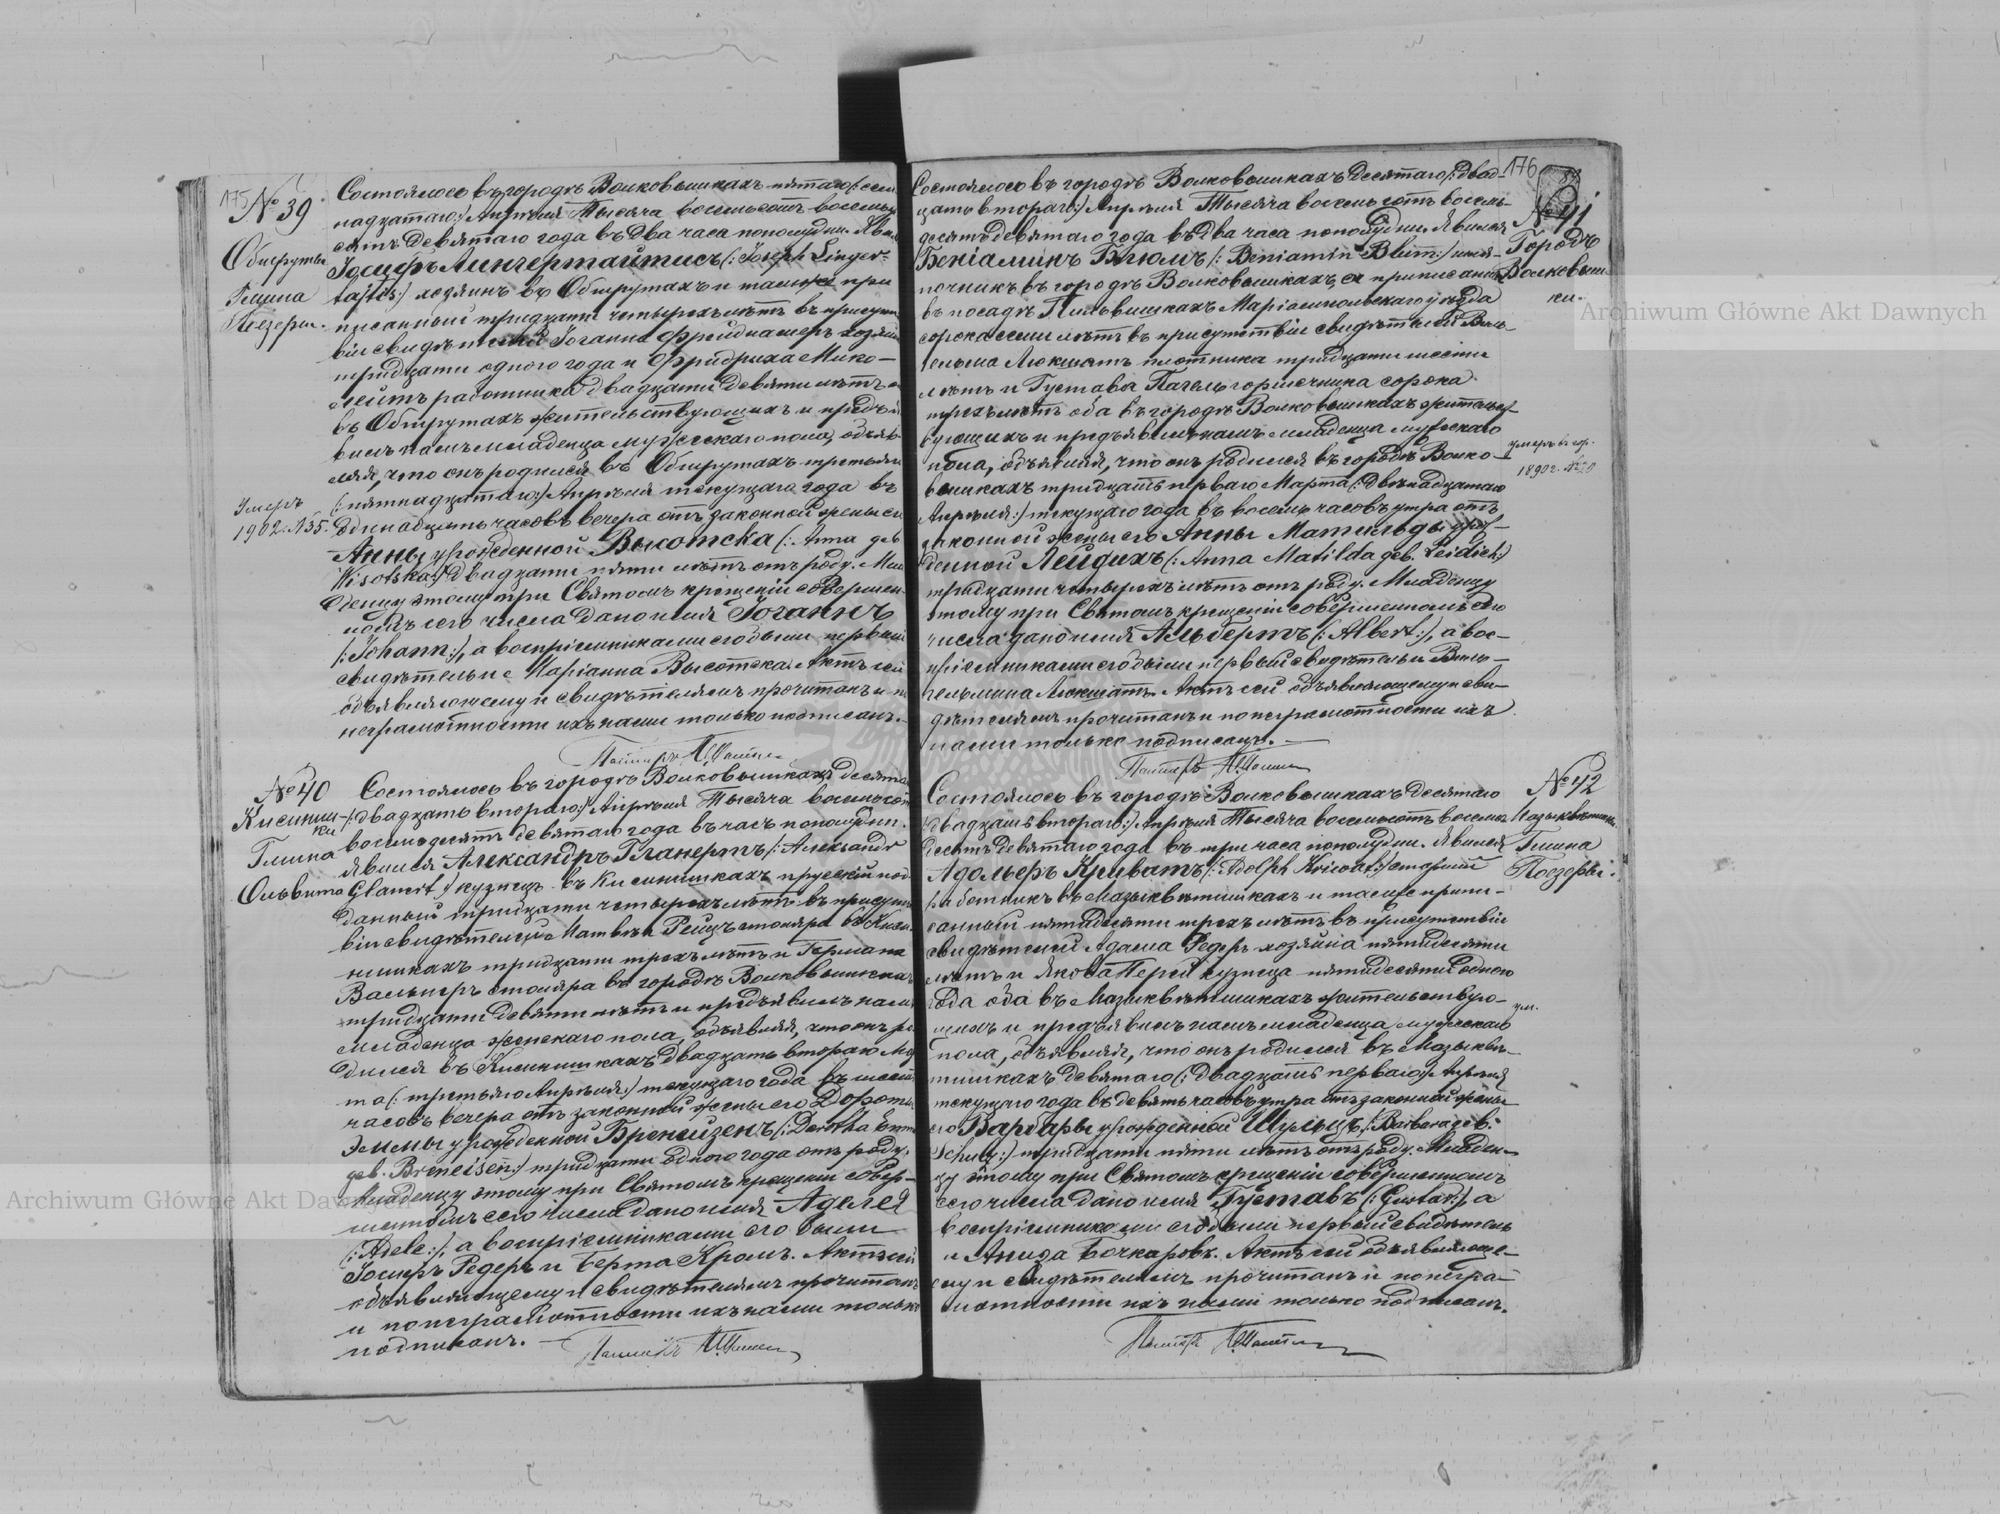 175
№ 39
Обшруты
Гмина
Поезеры.
Умеръ
1902. №35.
Состоялось въ городѣ Волковышкахъ пятаго (: сем
надцатаго:) Апрѣля Тысяча восемьсотъ восемьде
сятъ девятаго года въ два часа пополудни. Явил
Іосифъ Лингертайтисъ (: Joseph Linger-
tajtis:) хозяинъ въ Обшрутахъ и тамже при
писанный тридцати четырехъ лѣтъ въ присутст
віи свидѣтелей Іоганна Фрейдишеръ хозяин
тридцати одного года и Фридриха Мико-
лейтъ работника двадцати девяти лѣтъ
въ Обшрутахъ жительствующихъ и предъя
вилъ намъ младенца мужескаго пола, объяв
ляя, что онъ родился въ Обшрутахъ третьяго
(: пятнадцатаго:) Апрѣля текущаго года въ
одинадцать часовъ вечера отъ законной жены ег
Анны урожденной Высотска (: Anna geb
Wisotska:) двадцати пяти лѣтъ отъ роду. Мла
денцу этому при Святомъ крещеніи совершен
номъ сего числа дано имя Іоганнъ
(: Johann:), а воспріемниками его были первый
свидѣтель и Маріанна Высотска. Актъ сей
объявляющему и свидѣтелямъ прочитанъ и по
неграмотности ихъ нами только подписанъ.
Пасторъ
№ 40
Кисиниш-
ки
Гмина
Ольвита
Состоялось въ городѣ Волковышкахъ десята
(: двадцать втораго:) Апрѣля Тысяча восемьсотъ
восемьдесятъ девятаго года въ часъ пополудни.
Явился Александръ Гланертъ (: Aleksandr
Glanert:) кузнецъ въ Кисинишкахъ прусскій под
данный тридцати четырехъ лѣтъ въ присутст
віи свидѣтелей Матвѣя Рейцъ столяра въ Киси
нишкахъ тридцати трехъ лѣтъ и Германа
Вальнеръ столяра въ городѣ Волковышкахъ
тридцати девяти лѣтъ и предъявилъ намъ
младенца женскаго пола, объявляя, что онъ ро
дился въ Кисинишкахъ двадцать втораго Мар
та (: третьяго Апрѣля:) текущаго года въ шесть
часовъ вечера отъ законной жены его Дороты
Эммы урожденной Бренейзенъ (: Dorotha Emma
geb. Breneisen:) тридцати одного года отъ роду.
Младенцу этому при Святомъ крещеніи совер-
шенномъ сего числа дано имя Аделея
(: Adele:), а воспріемниками его были
Іосифъ Редеръ и Берта Кромъ. Актъ сей
объявляющему и свидѣтелямъ прочитанъ
и по неграмотности ихъ нами только
подписанъ. —
Пасторъ
176
№ 41
Городъ
Волковыш-
ки.
умеръ въ гор.
1890 г.
Состоялось въ городѣ Волковышкахъ десятаго (: двад-
цать втораго:) Апрѣля Тысяча восемьсотъ восемь-
десятъ девятаго года въ два часа пополудни. Явился
Беніаминъ Блюмъ (: Beniamin Blum:)
въ городѣ Волковышкахъ, а приписанный
въ посадѣ Пильвишкахъ Маріампольскаго уѣзда
сорока семи лѣтъ въ присутствіи свидѣтелей Виль-
гельма Люкшатъ плотника тридцати шести
лѣтъ и Густава Пагель горшечника сорока
трехъ лѣтъ оба въ городѣ Волковышкахъ жительст-
вующихъ и предъявилъ намъ младенца мужескаго
пола, объявляя, что онъ родился въ городѣ Волко-
вышкахъ тридцать перваго Марта (: двѣнадцатаго
Апрѣля:) текущаго года въ восемь часовъ утра отъ
законной жены его Анны Матильды урож-
денной Лейдихъ (: Anna Matilda geb. Leidich:)
тридцати четырехъ лѣтъ отъ роду. Младенцу
этому при Святомъ крещеніи совершенномъ сего
числа дано имя Альбертъ (: Albert:), а вос-
пріемниками его были первый свидѣтель и Виль-
гельмина Люкшатъ. Актъ сей объявляющему и сви-
дѣтелямъ прочитанъ и по неграмотности ихъ
нами только подписанъ. —
Пасторъ
№ 42
Мазыкветишки.
Гмина
Поезеры.
ум.
Состоялось въ городѣ Волковышкахъ десятаго
(: двадцать втораго:) Апрѣля Тысяча восемьсотъ восемь
десятъ девятаго года въ три часа пополудни. Явился
Адольфъ Криватъ (: Adolph Kriwat:)
работникъ въ Мазыкветишкахъ и тамже припи-
санный пятидесяти трехъ лѣтъ въ присутствіи
свидѣтелей Адама Редеръ хозяина пятидесяти
лѣтъ и Якова Перей кузнеца пятидесяти одного
года оба въ Мазыкветишкахъ жительствую-
щихъ и предъявилъ намъ младенца мужескаго
пола, объявляя, что онъ родился въ Мазыкве-
тишкахъ девятаго (: двадцать перваго:) Апрѣля
текущаго года въ девять часовъ утра отъ законной жены
его Варбары урожденной Шульцъ (: Barbara geb.
Schulz:) тридцати пяти лѣтъ отъ роду. Младен-
цу этому при Святомъ крещеніи совершенномъ
сего числа дано имя Густавъ (: Gustav:), а
воспріемниками его были первый свидѣтель
и Амиза Бочкаровъ. Актъ сей объявляюще-
му и свидѣтелямъ прочитанъ и по негра-
мотности ихъ нами только подписанъ.
Пасторъ
Archiwum Główne Akt Dawnych
Archiwum Główne Akt Dawnych